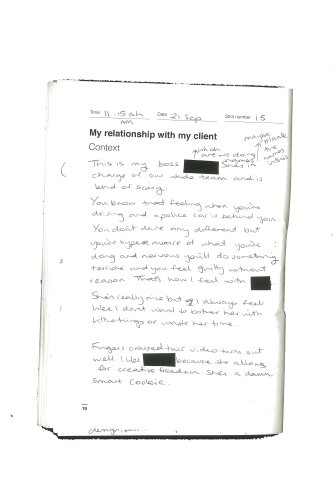 Time 11.15ish AM Date 21 Sep Shot number 15
My relationship with my client
Context
uh oh are we doing names
maybe blank the names in this
This is my boss She's in
charge of our whole team and is
kind of scary.
You know that feeling when you're
driving and a police car is behind you.
You don't drive any different but
you're hyper aware of what you're
doing and nervous you'll do something
terrible and you feel guilty without
reason. That's how I feel with
She's really nice but I always feel
like I don't want to bother her with
little things or waste her time.
Fingers crossed this video turns out
well. I like because she allows
for creative freedom. She's a damn
smart cookie.
18